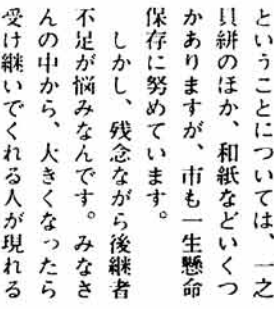 ということについては、一之
貝絣のほか、和紙などいくつ
かありますが、市も一生懸命
保存に努めています。
しかし、残念ながら後継者
不足が悩みなんです。みなさ
んの中から、大きくなったら
受け継いでくれる人が現れる